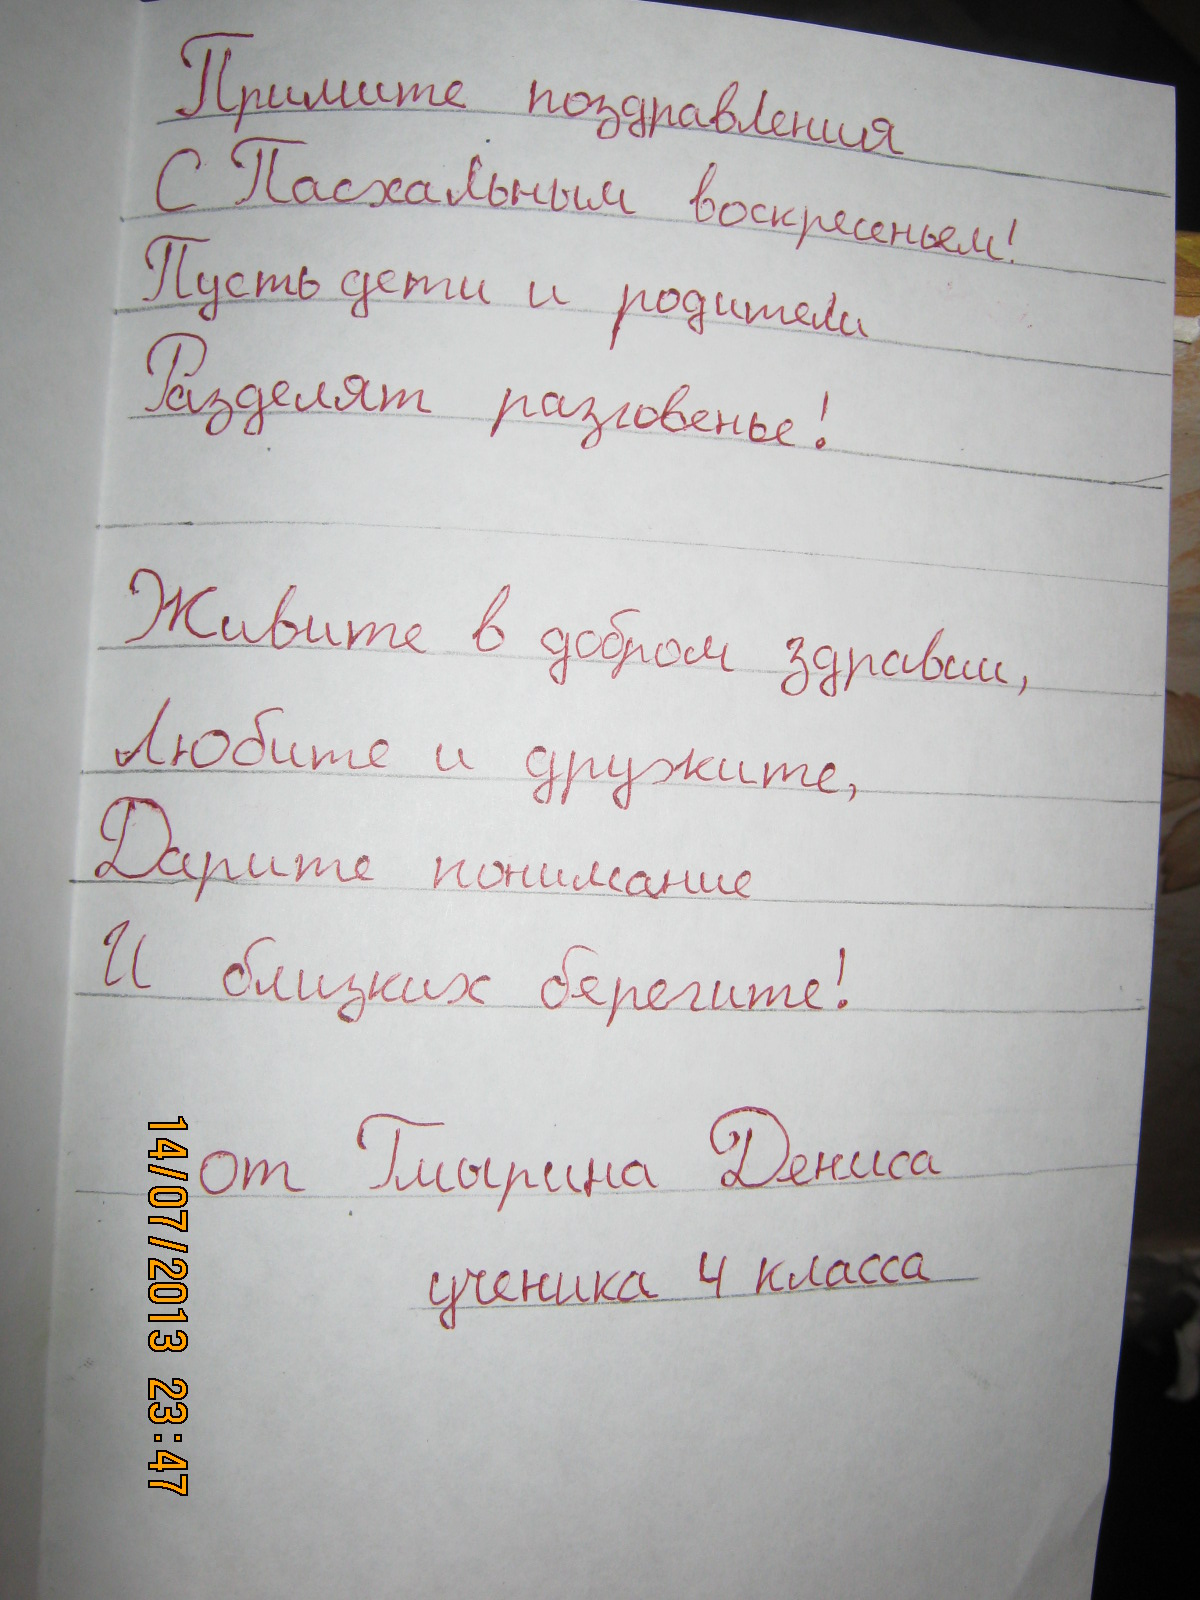 Примите поздравления
С Пасхальным воскресеньем!
Пусть дети и родители
Разделят разговенье!
Живите в добром здравии,
Любите и дружите,
Дарите понимание
И близких берегите!
от Тмырина Дениса
ученика 4 класса
14/07/2013 23:47